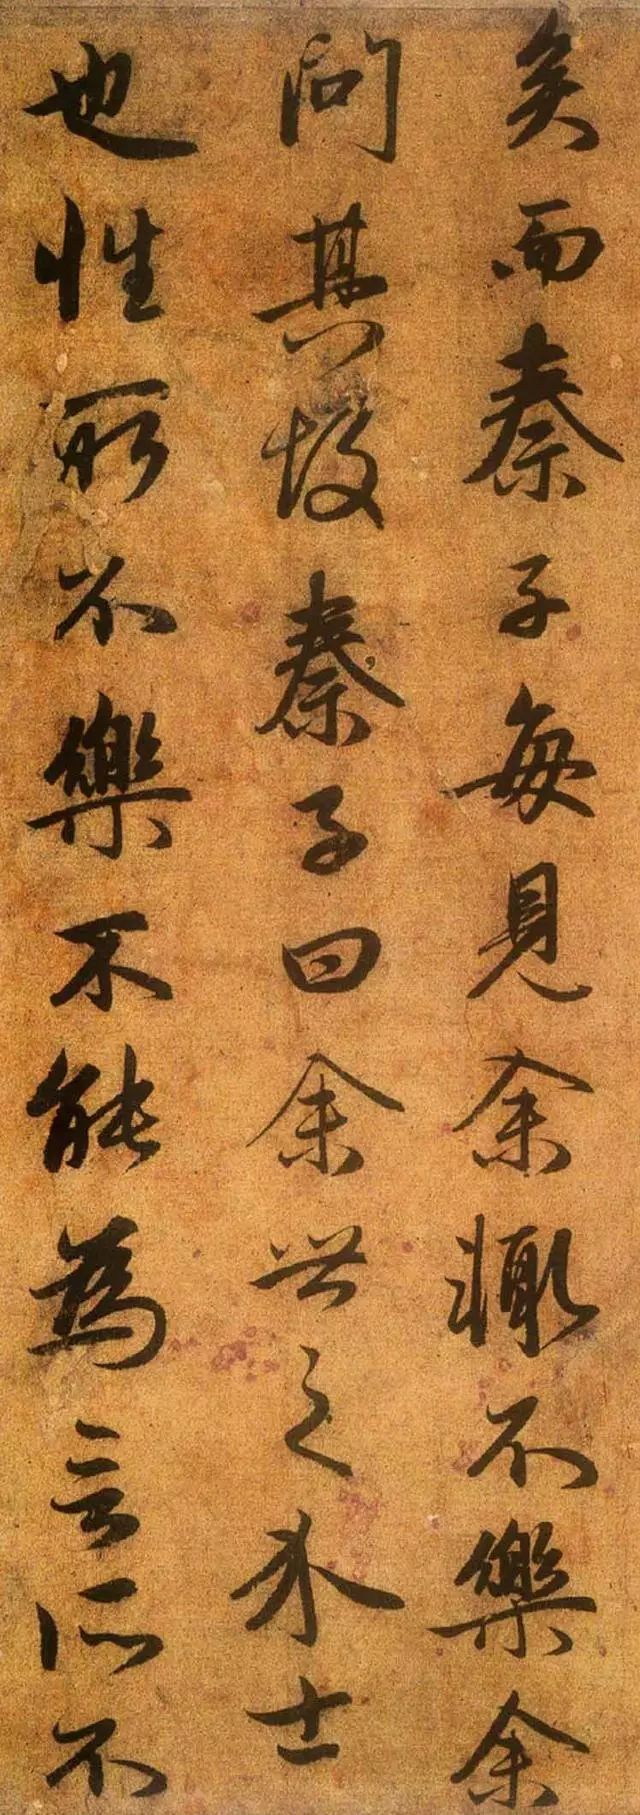 矣而秦子每見余輒不樂余
問其故秦子曰余世之介士
也性所不樂不能為言所不